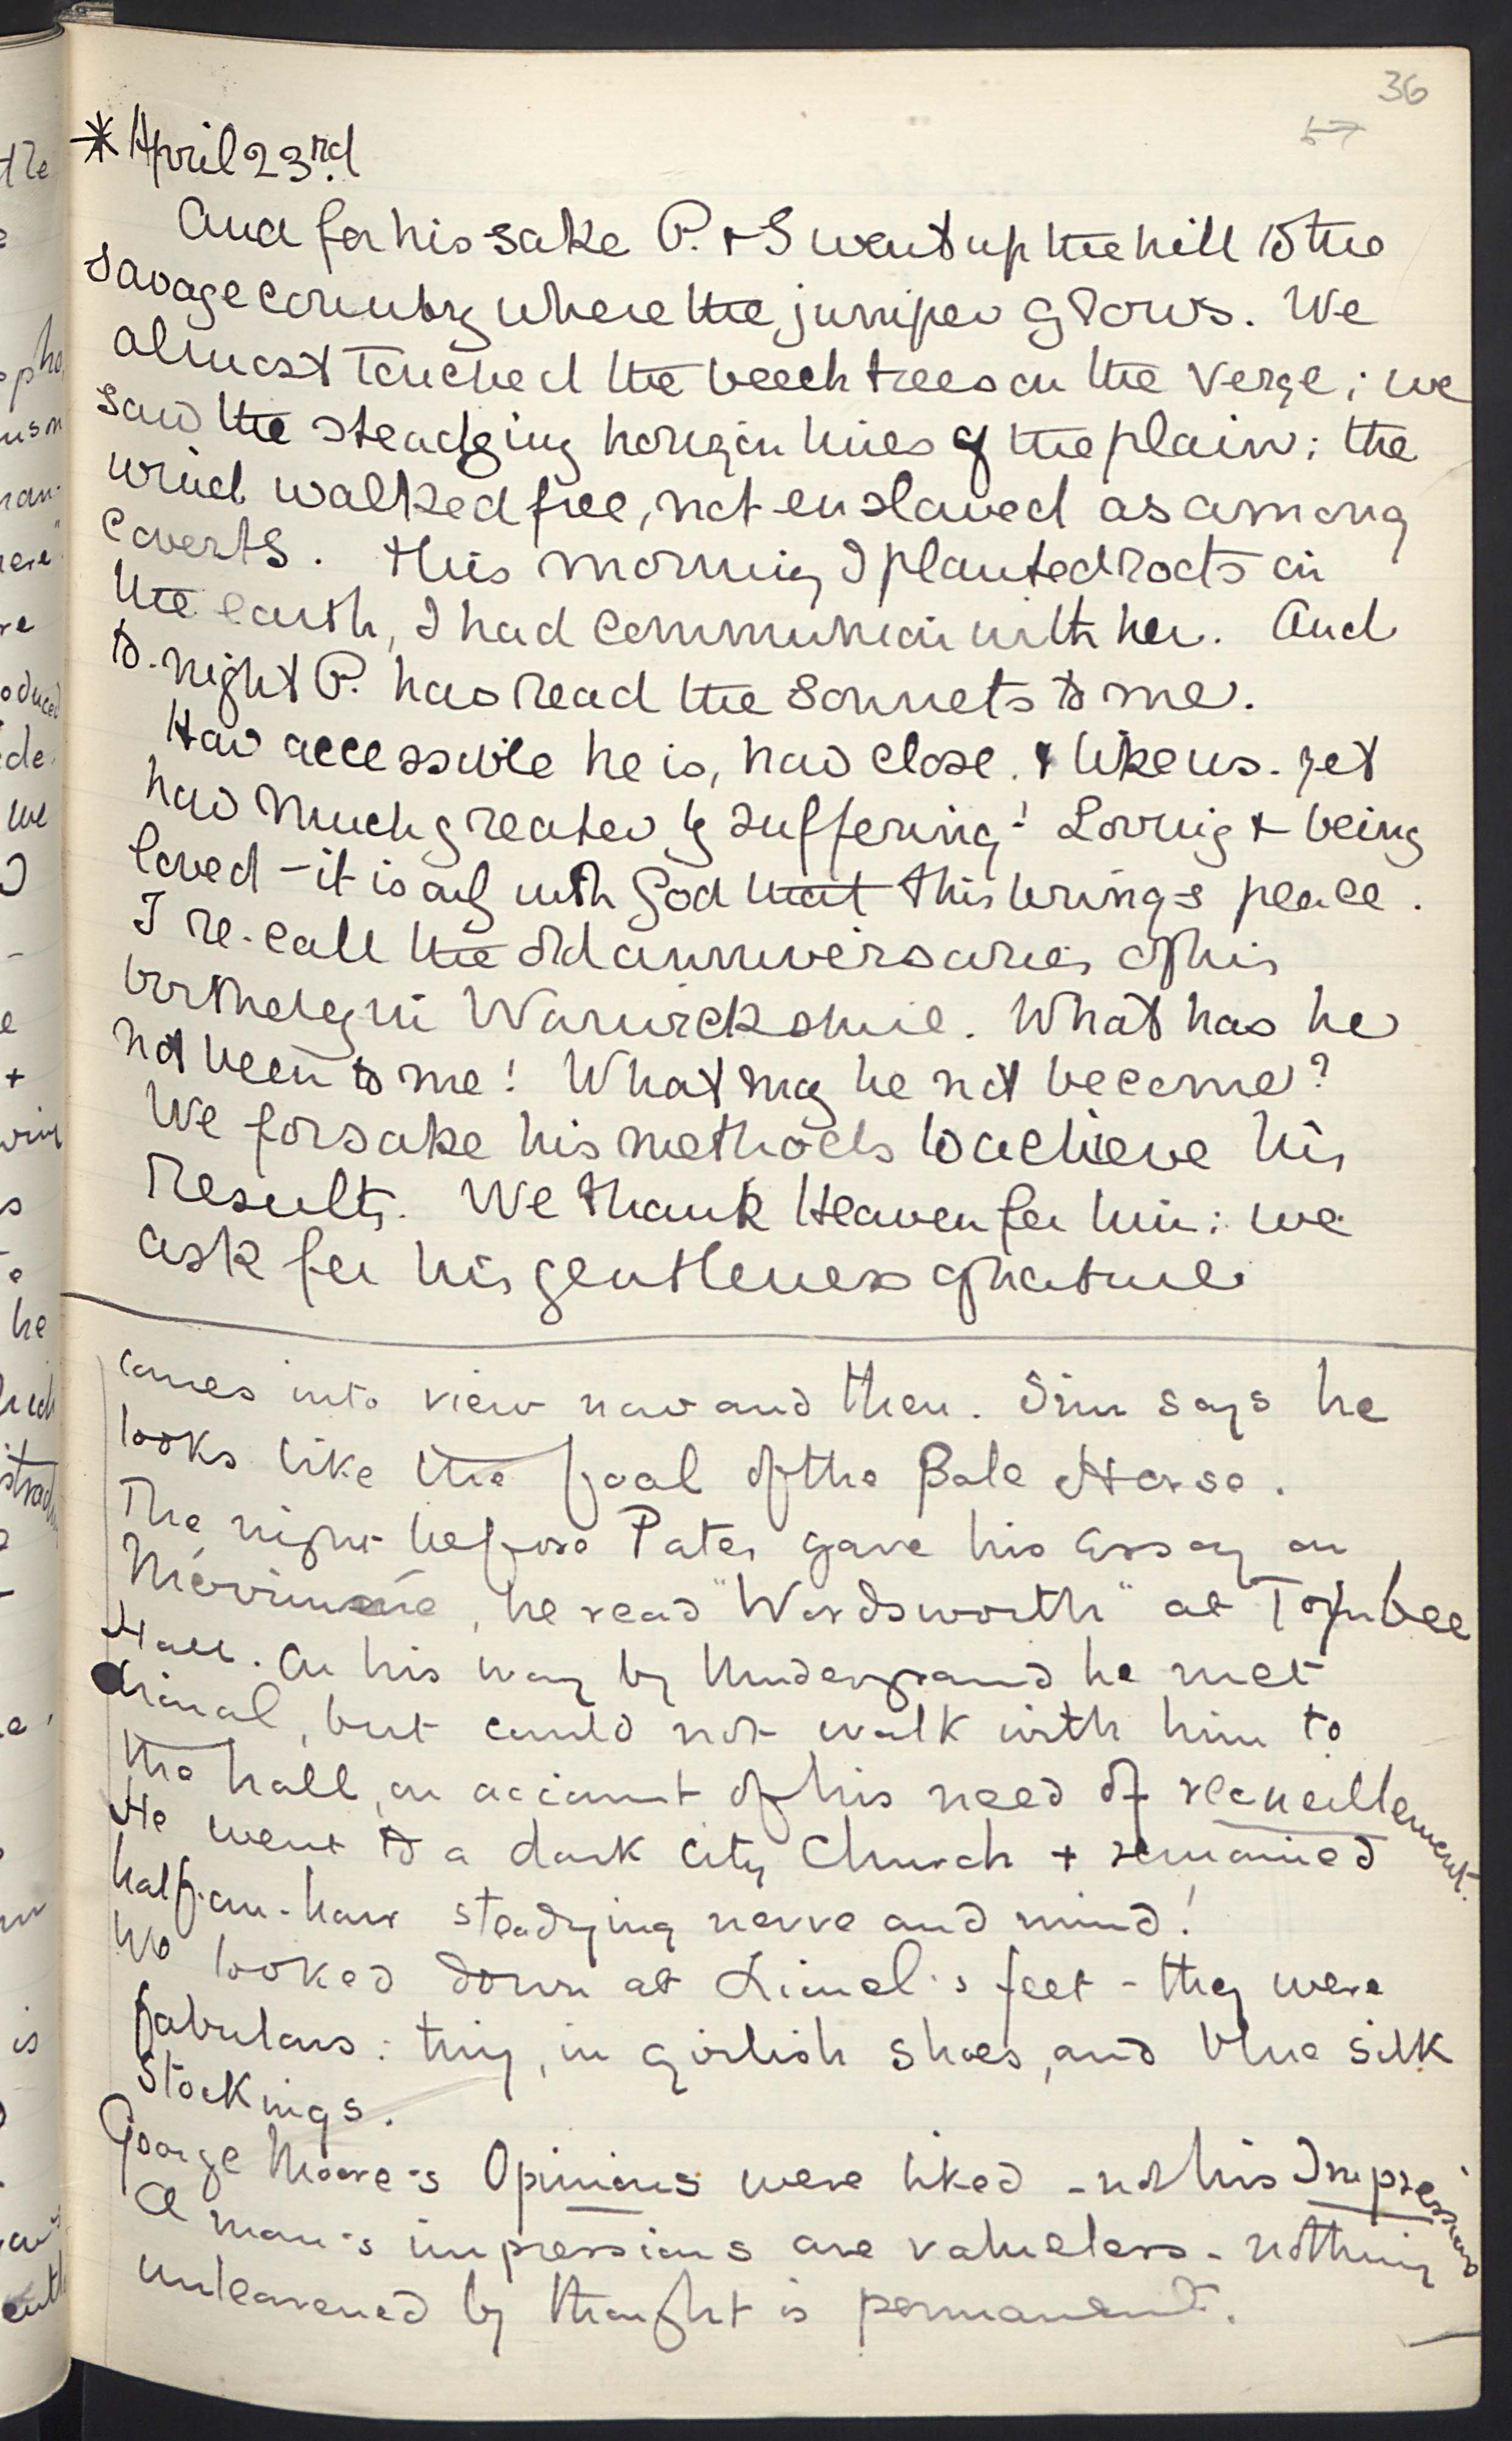 36
57
* April 23rd
And for his sake P. & S went up the hill to the
savage country where the juniper grows. We
almost touched the beech trees on the verge; we
saw the steadying horizon lines of the plain; the
wind walked free, not enslaved as among
coverts. This morning I planted roots in
the earth, I had communion with her. And
to-night P. has read the Sonnets to me.
How accessible he is, how close. & like us. yet
how much greater by suffering! Loving & being
loved – it is only with God that this brings peace.
I re-call the old anniversaries of his
birthday in Warwickshire. What has he
not been to me! What may he not become?
We forsake his methods to achieve his
Results. We thank Heaven for him: we
ask for his gentleness of nature.
comes into view now and then. Sim says he
looks like the foal of the Pale Horse.
The night before Pater gave his Essay on
Mérimée, he read "Wordsworth" at Toynbee
Hall. On his way by Underground he met
Lionel, but could not walk with him to
the hall, on account of his need of recueillement.
He went to a dark City Church + remained
half-an-hour steadying nerve and mind!
We looked down at Lionel's feet – they were
fabulous: tiny, in girlish shoes, and blue silk
stockings.
George Moore's Opinions were liked – not his Impressions
A man's impressions are valueless – nothing
unleavened by thought is permanent.